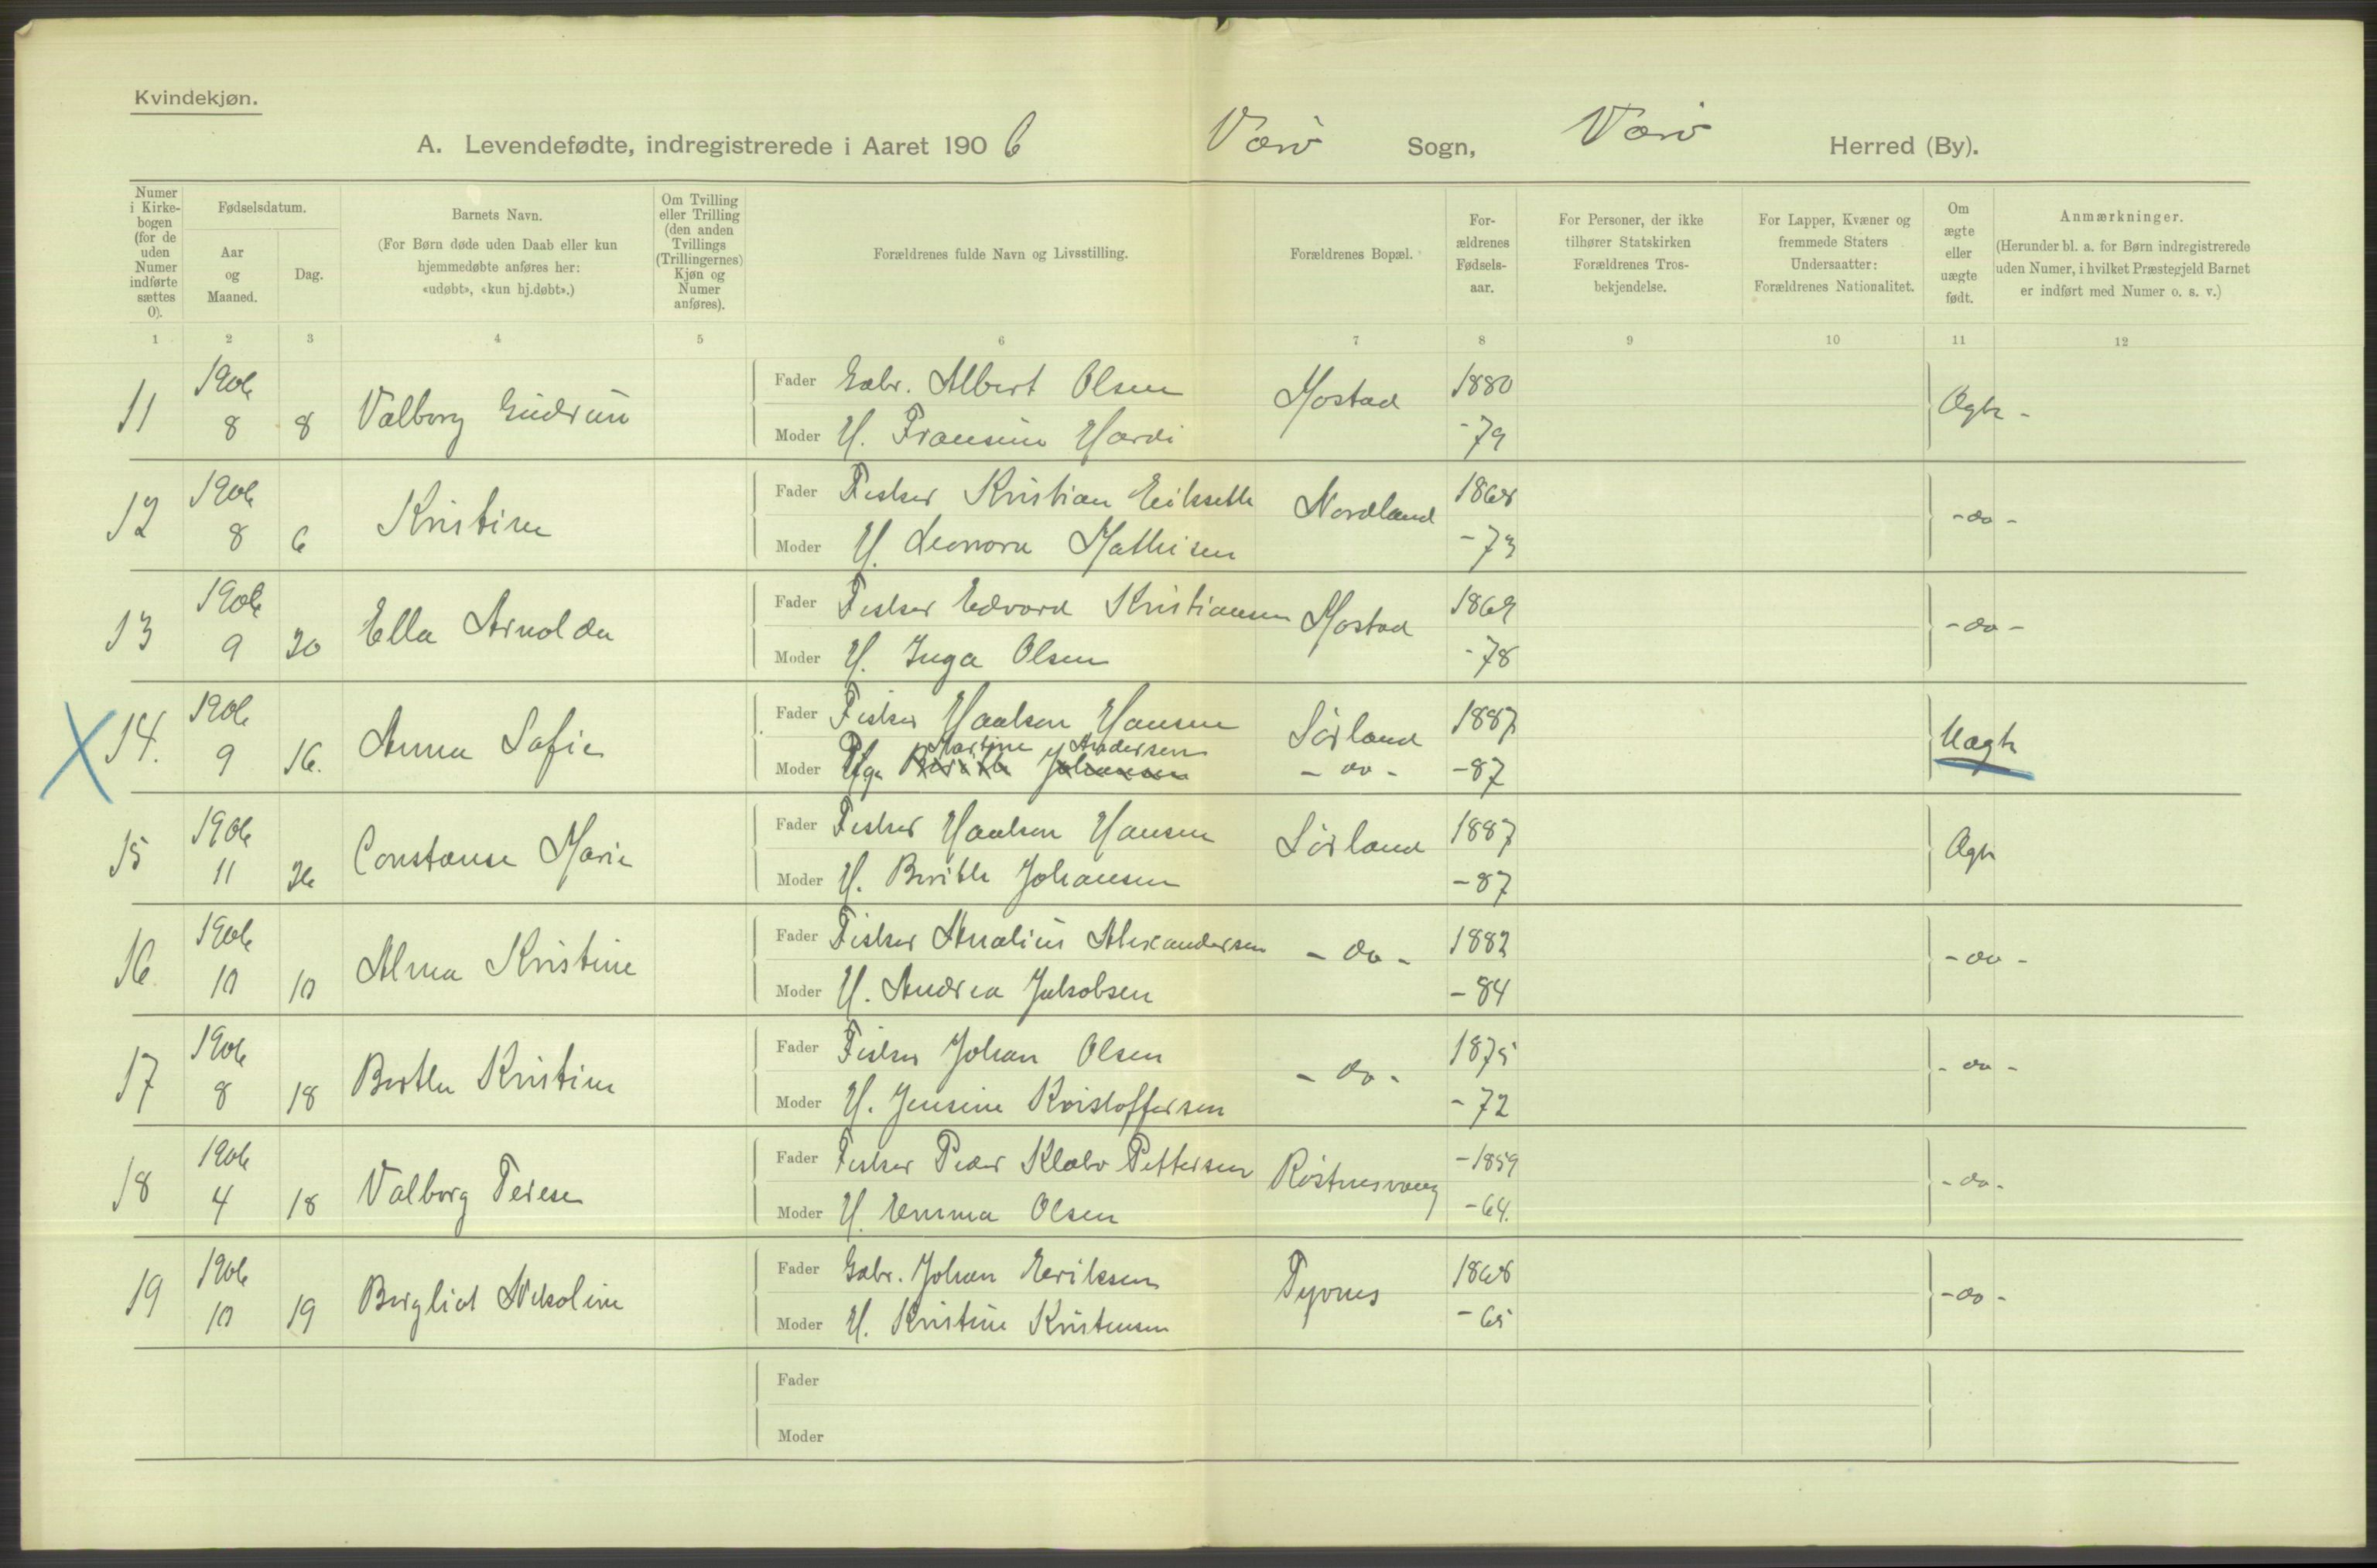 Kvindekjøn.
A. Levendefødte, indregistrerede i Aaret 1906 Værö Sogn, Værö Herred (By).
Numer i Kirke-bogen (for de uden Numer indførte sættes 0).
Fødselsdatum.
Aar og Maaned.
Dag.
Barnets Navn.
(For Børn døde uden Daab eller kun hjemmedøbte anføres her: «udøbt», «kun hj.døbt».)
Om Tvilling eller Trilling (den anden Tvillings (Trillingernes) Kjøn og Numer anføres).
Forældrenes fulde Navn og Livsstilling.
Forældrenes Bopæl.
For-ældrenes Fødsels-aar.
For Personer, der ikke tilhører Statskirken Forældrenes Tros-bekjendelse.
For Lapper, Kvæner og fremmede Staters Undersaatter: Forældrenes Nationalitet.
Om ægte eller uægte født.
Anmærkninger.
(Herunder bl. a. for Børn indregistrerede uden Numer, i hvilket Præstegjeld Barnet er indført med Numer o. s. v.)
1 2 3 4 5 6 7 8 9 10 11 12
11 1906 8 8 Valborg Gudrun Fader Gabr. Albert Olsen Mostad 1880 Ægte -
Moder H. Fransine Hardi -79
12 1906 8 6 Kristine Fader Fisker Kristian Nordland 1868 - do -
Moder H. Leonora Mathisen -73
13 1906 9 30 Ella Arnolda Fader Fisker Edvard Kristiansen Mostad 1869 - do -
Moder H. Inga Olsen -78
14. 1906 9 16. Anna Sofie Fader Fisker Haakon Hansen Sörland 1887 Uægte
Martine Andersen
Moder Pige Berithe Johansen - do - -87
15 1906 11 26 Constanse Marie Fader Fisker Haakon Hansen Sörland 1887 Ægte
Moder H. Berithe Johansen -87
16. 1906 10 10 Alma Kristine Fader Fisker Alexandersen - do - 1882 - do -
Moder H. Andrea Jakobsen -84
17 1906 8 18 Berthe Kristine Fader Fisker Johan Olsen - do - 1875 - do -
Moder H. Jensine Kristoffersen -72
18 1906 4 18 Valborg Terese Fader Fisker Peder Pettersen Röstnesvaag -1859 - do -
Moder H. Emma Olsen -64.
19 1906 10 19 Bergliot Nikoline Fader Gabr. Johan Eeriksen Tyvnes 1868 - do -
Moder H. Kristine Kristensen -65
Fader
Moder